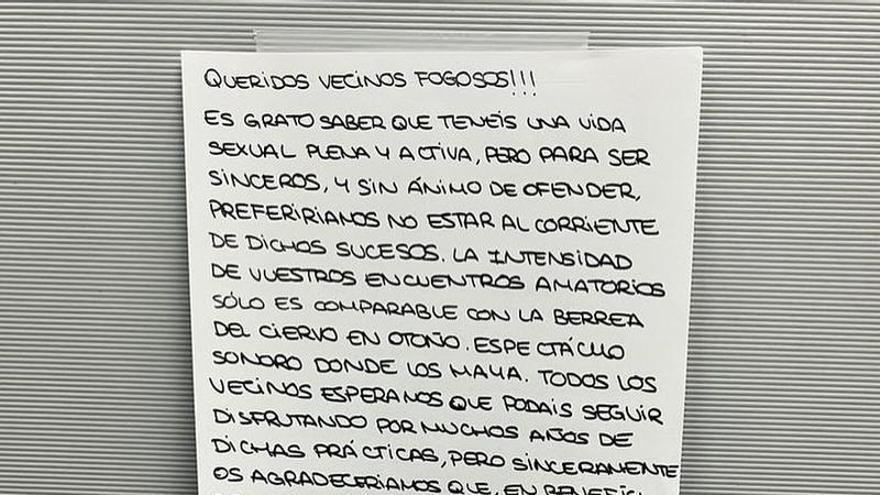 QUERIDOS VECINOS FOGOSOS!!!
ES GRATO SABER QUE TENEIS UNA VIDA
SEXUAL PLENA Y ACTIVA, PERO PARA SER
SINCEROS, Y SIN ÁNIMO DE OFENDER,
PREFERIRIAMOS NO ESTAR AL CORRIENTE
DE DICHOS SUCESOS. LA INTENSIDAD
DE VUESTROS ENCUENTROS AMATORIOS
SÓLO ES COMPARABLE CON LA BERREA
DEL CIERVO EN OTOÑO. ESPECTÁCULO
SONORO DONDE LOS HAYA. TODOS LOS
VECINOS ESPERAMOS QUE PODAIS SEGUIR
DISFRUTANDO POR MUCHOS AÑOS DE
DICHAS PRÁCTICAS, PERO SINCERAMENTE
OS AGRADECERIAMOS QUE, EN BENEFICI